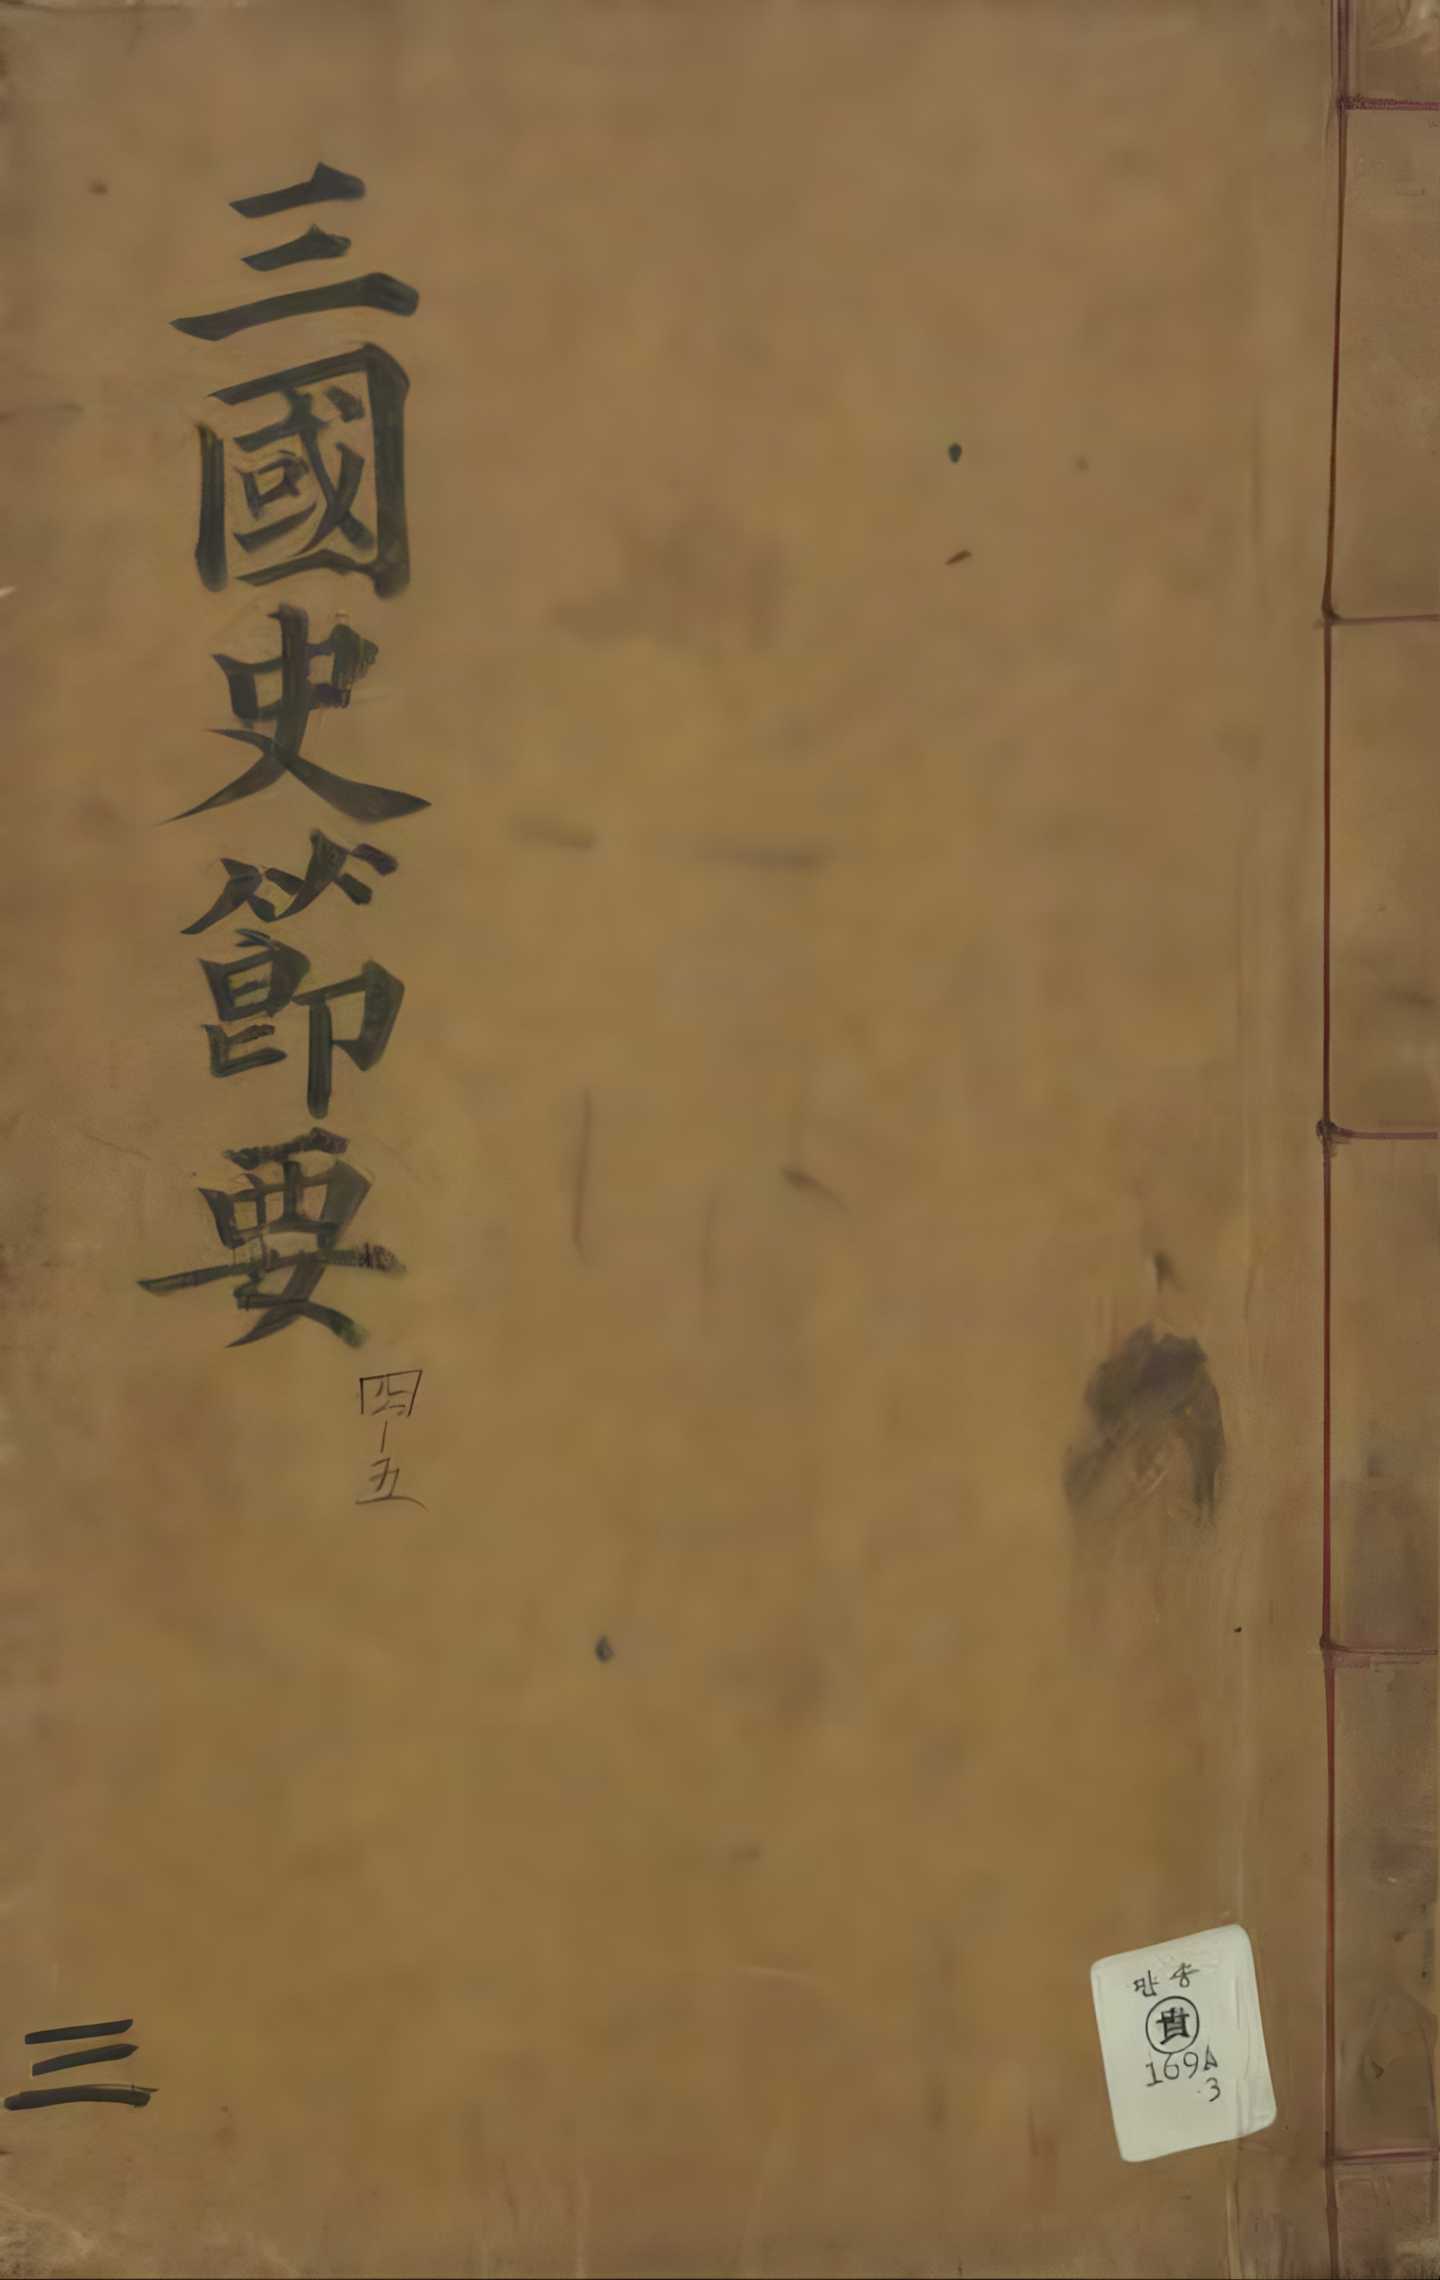 三國史節要
四-五
三
만송
貴
169A
3